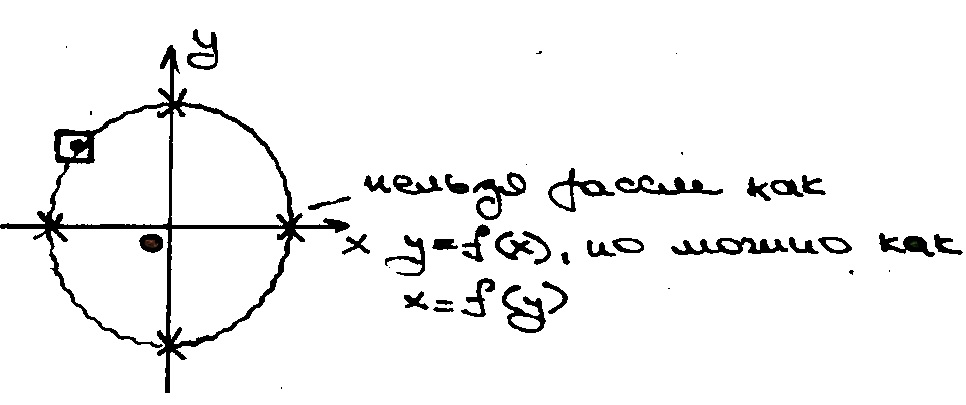 y
нельзя рассм как
x y=f(x), но можно как
x=f(y)